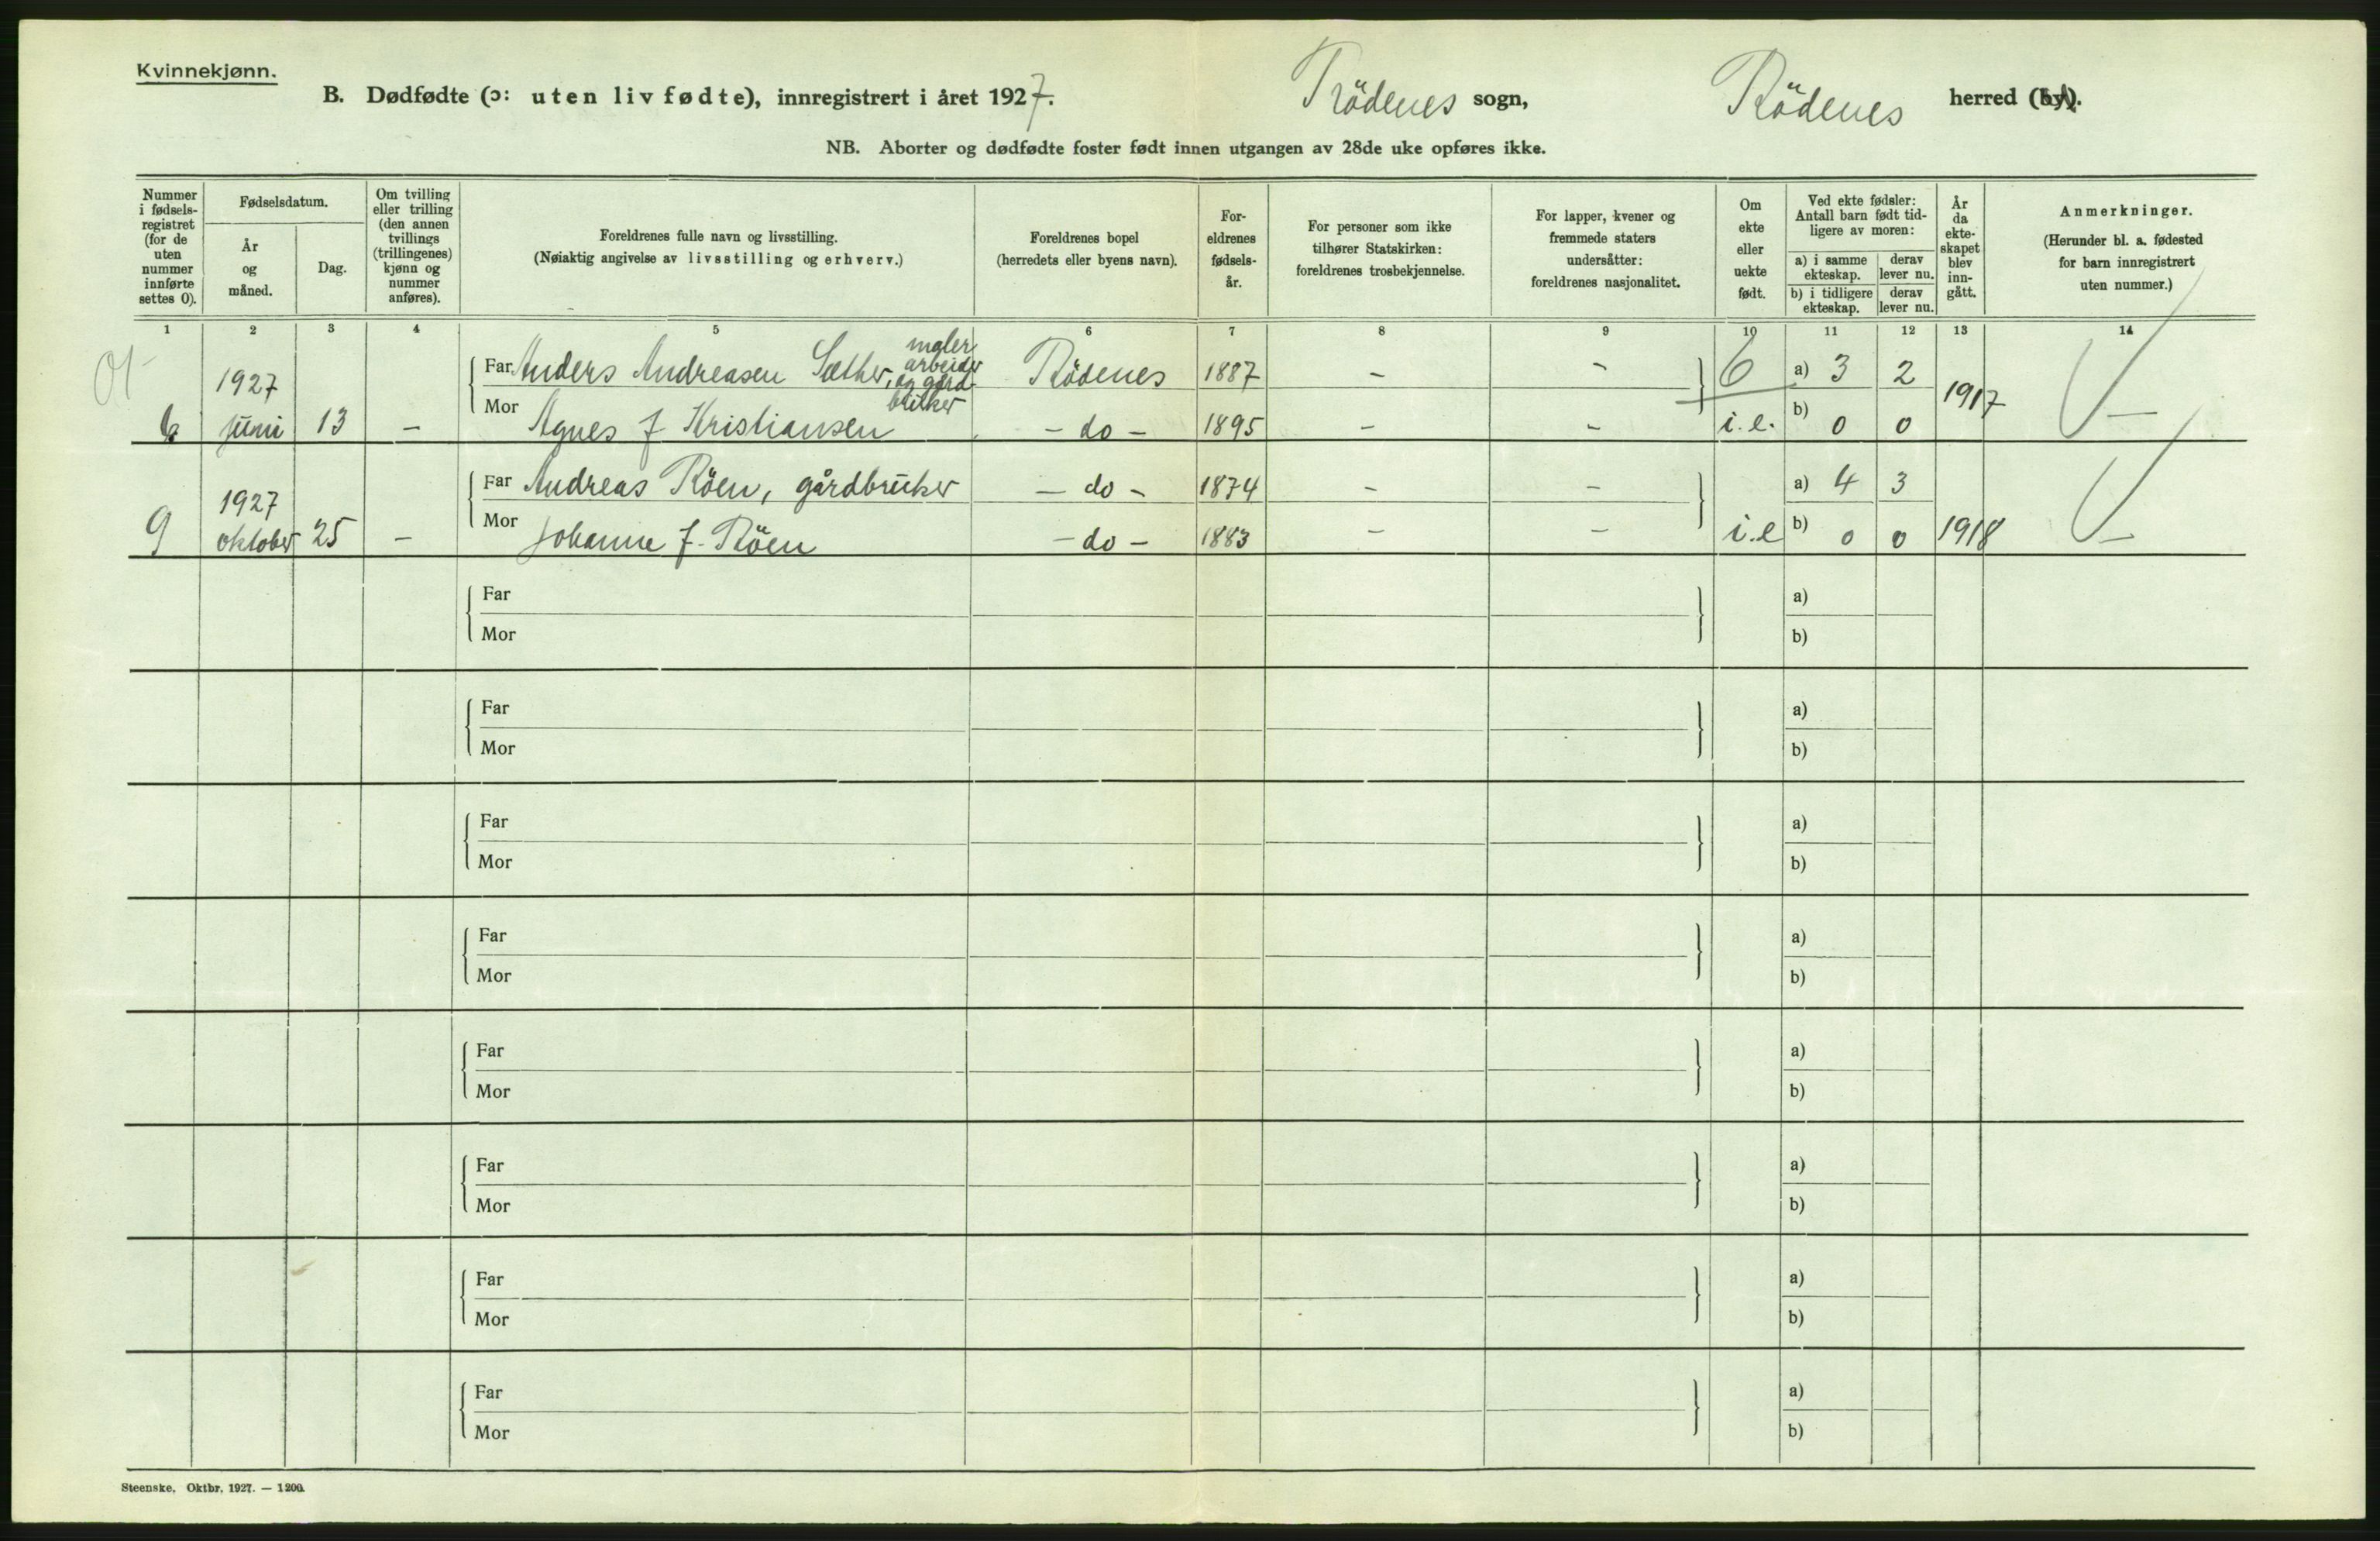 Kvinnekjønn.
B. Dødfødte (ɔ: uten liv fødte), innregistrert i året 1927. Rödenes sogn, Rödenes herred (by).
NB. Aborter og dødfødte foster født innen utgangen av 28de uke opføres ikke.
Nummer i fødsels-registret (for de uten nummer innførte settes 0).
Fødselsdatum.
År og måned.
Dag.
Om tvilling eller trilling (den annen tvillings (trillingenes) kjønn og nummer anføres).
Foreldrenes fulle navn og livsstilling.
(Nøiaktig angivelse av livsstilling og erhverv.)
Foreldrenes bopel
(herredets eller byens navn).
For-eldrenes fødsels-år.
For personer som ikke tilhører Statskirken: foreldrenes trosbekjennelse.
For lapper, kvener og fremmede staters undersåtter: foreldrenes nasjonalitet.
Om ekte eller uekte født.
Ved ekte fødsler: Antall barn født tid-ligere av moren:
a) i samme ekteskap. derav lever nu.
b) i tidligere ekteskap. derav lever nu.
År da ekte-skapet blev inn-gått.
Anmerkninger.
(Herunder bl. a. fødested for barn innregistrert uten nummer.)
1 2 3 4 5 6 7 8 9 10 11 12 13 14
1927 Far Anders Andreasen Sæther, maler arbeider og gård-bruker Rödenes 1887 - - 6 a) 3 2 1917
6 juni 13 - Mor Agnes f Kristiansen - do - 1895 - - i.e. b) 0 0 -
1927 Far Andreas Röen, gårdbruker - do - 1874 - - a) 4 3
9 oktober 25 - Mor Johanne f. Röen - do - 1883 - - i.e b) 0 0 1918 -
Far a)
Mor b)
Far a)
Mor b)
Far a)
Mor b)
Far a)
Mor b)
Far a)
Mor b)
Far a)
Mor b)
Far a)
Mor b)
Far a)
Mor b)
Steenske. Oktbr. 1927. — 1200.